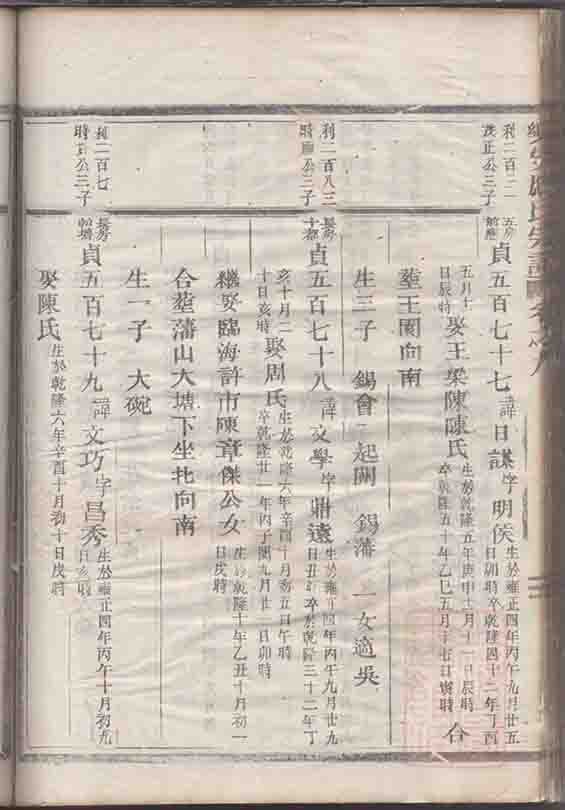 利二百二
茂正公三子
五房
貞五百七十七諱日謀字明侯
生於雍正四年丙午九月廿五
日卯時卒乾隆四十二年丁酉
五月十
日辰時
娶王梁陳陳氏
生於乾隆五年庚申十月十一日辰時
卒乾隆五十年乙巳五月十七日寅時
合
塟王園向南
生三子 錫會 起關 錫藩 一女適吳
利二百八三
公三子
長房
貞五百七十八諱文學字鼎遠
生於雍正四年丙午九月廿九
日丑時卒於乾隆三十二年丁
亥十月二
十日亥時
娶周氏
生於乾隆六年辛酉十月初五日午時
卒乾隆廿一年丙子閏九月廿一日卯時
繼娶臨海許市陳章傑公女
生於乾隆十年乙丑十月初一
日戌時
合塟蒲山大塘下坐北向南
生一子 大碗
利二百七
時正公三子
長房
貞五百七十九諱文巧字昌秀
生於雍正四年丙午十月初九
日亥時
娶陳氏
生於乾隆六年辛酉十月初十日戌時